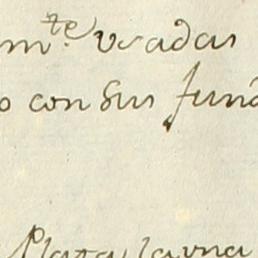 mte. usadas
o con sus fun
Plata la una